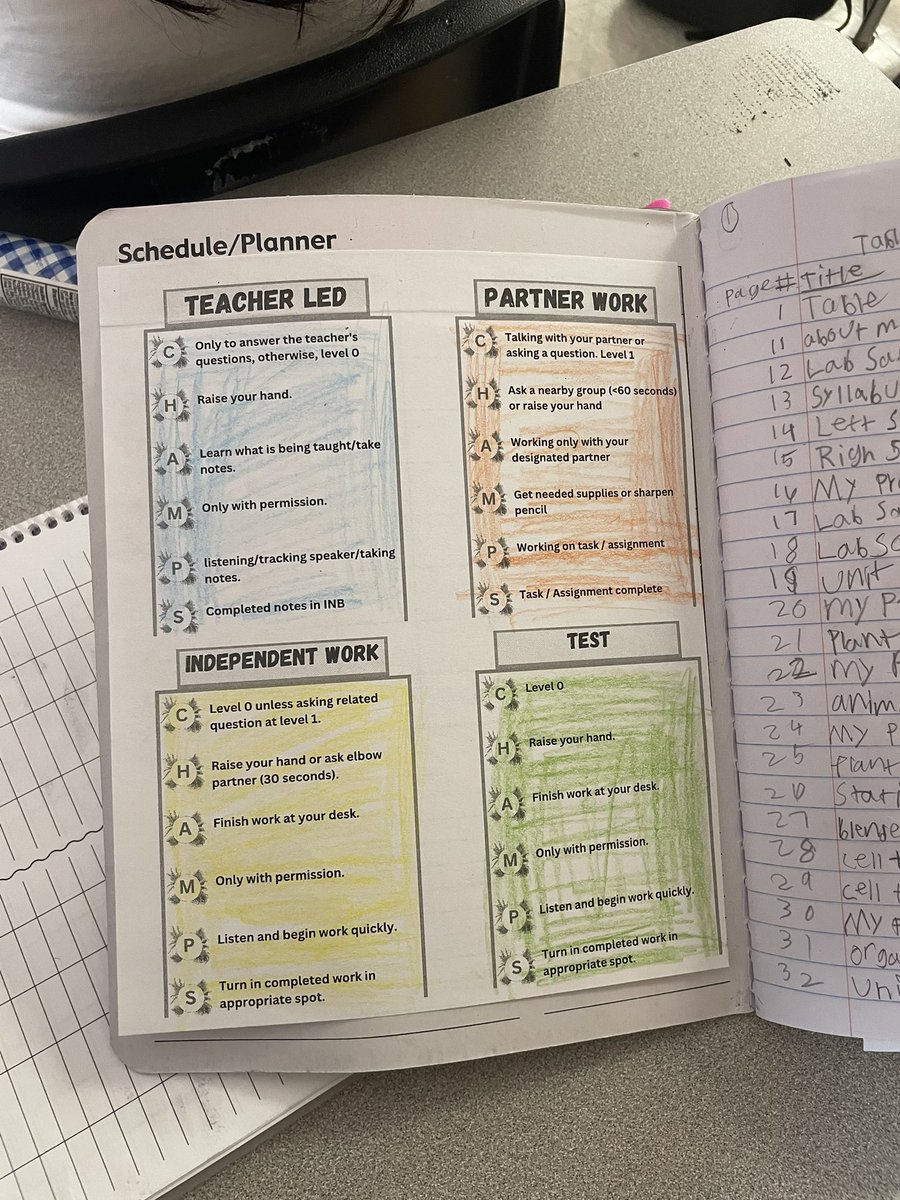 Schedule/Planner
TEACHER LED
C
Only to answer the teacher's
questions, otherwise, level 0
H
Raise your hand.
A
Learn what is being taught/take
notes.
M
Only with permission.
P
listening/tracking speaker/taking
notes.
S
Completed notes in INB
PARTNER WORK
C
Talking with your partner or
asking a question. Level 1
H
Ask a nearby group (<60 seconds)
or raise your hand
A
Working only with your
designated partner
M
Get needed supplies or sharpen
pencil
P
Working on task / assignment
S
Task / Assignment complete
INDEPENDENT WORK
C
Level 0 unless asking related
question at level 1.
H
Raise your hand or ask elbow
partner (30 seconds).
A
Finish work at your desk.
M
Only with permission.
P
Listen and begin work quickly.
S
Turn in completed work in
appropriate spot.
TEST
C
Level 0
H
Raise your hand.
A
Finish work at your desk.
M
Only with permission.
P
Listen and begin work quickly.
S
Turn in completed work in
appropriate spot.
1
Page # Title
1 Table
11 about m
12 Lab
13 Syllabu
14 Left S
15 Righ S
16 My
17 Lab
18 Lab
19 Unit
20 my P
21 Plant
22 my
23 anim
24 my P
25 Plant
Start
27
28 cell
29 cell
30 My
31 orga
32 Uni